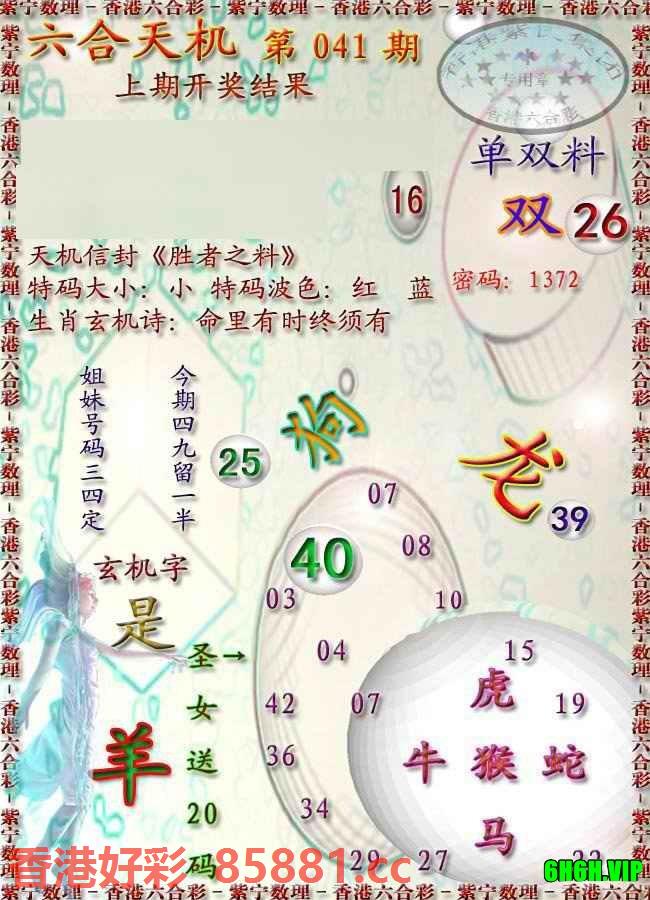 紫宁数理－香港六合彩－紫宁数理－香港六合彩－紫宁数理－香港六合彩
六合天机 第 041 期
上期开奖结果
专用章
香港六合彩
单双料
双 26
16
天机信封《胜者之料》
特码大小：小 特码波色：红 蓝
密码：1372
生肖玄机诗：命里有时终须有
今期四九留一半
姐妹号码三四定
25
狗
龙
39
07
40
08
03
10
04
15
玄机字
是
圣→
女
送
20
码
羊
42 07
虎
19
36
牛 猴 蛇
34
马
29 27
香港好彩 85881.cc
6H6H.VIP
紫宁数理－香港六合彩－紫宁数理－香港六合彩－紫宁数理－香港六合彩